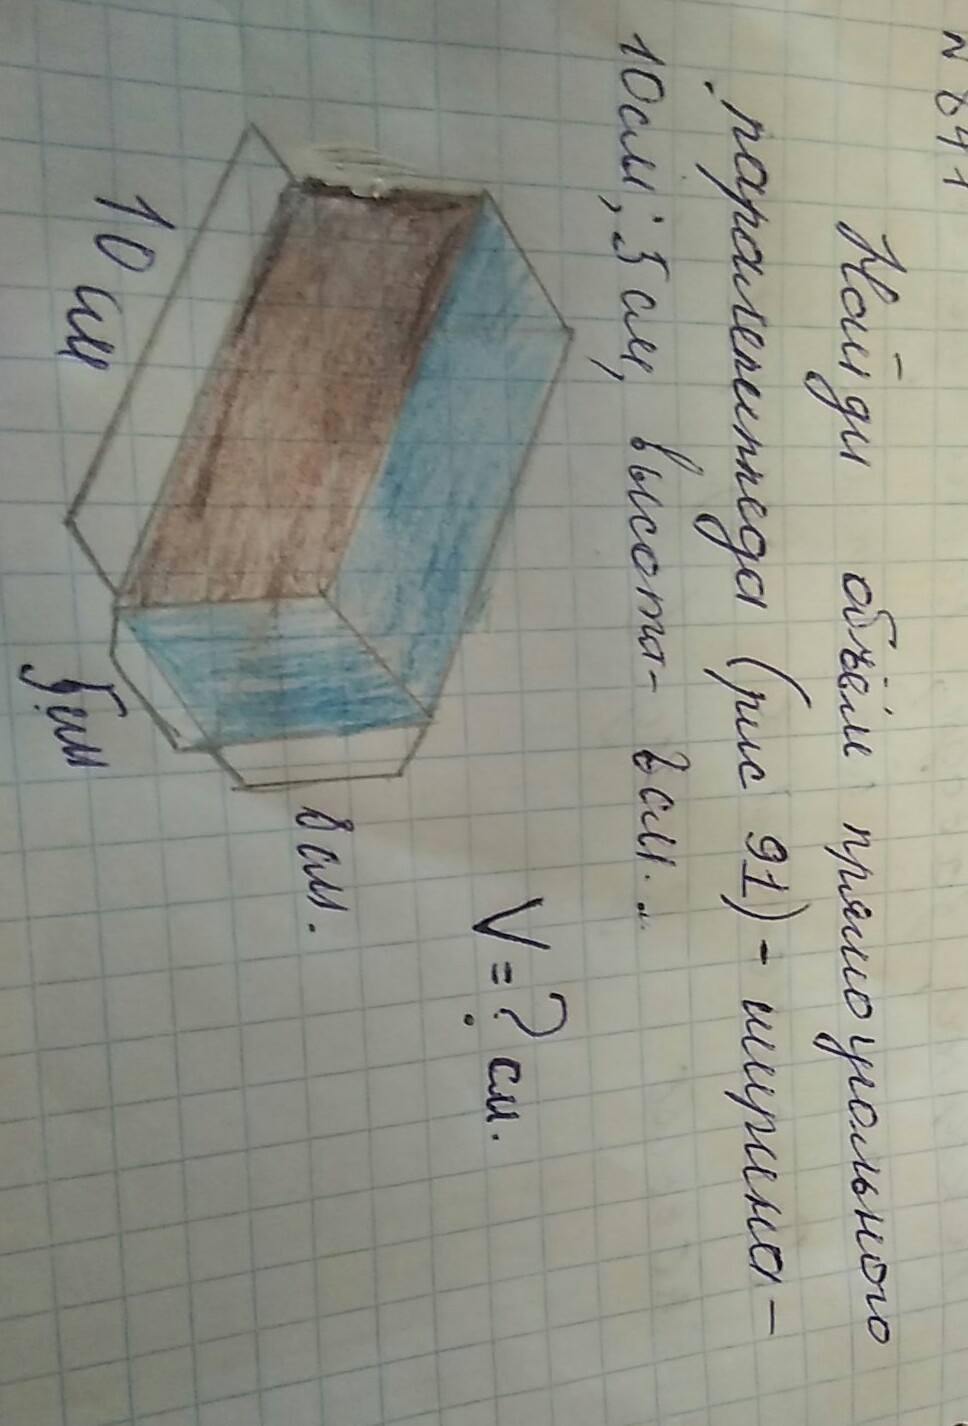 N 841
Найди объём прямоугольного
параллепипеда (рис 91) - ширина -
10 см, 5 см, высота - 8 см.
V = ? см.
8 см.
10 см
5 см